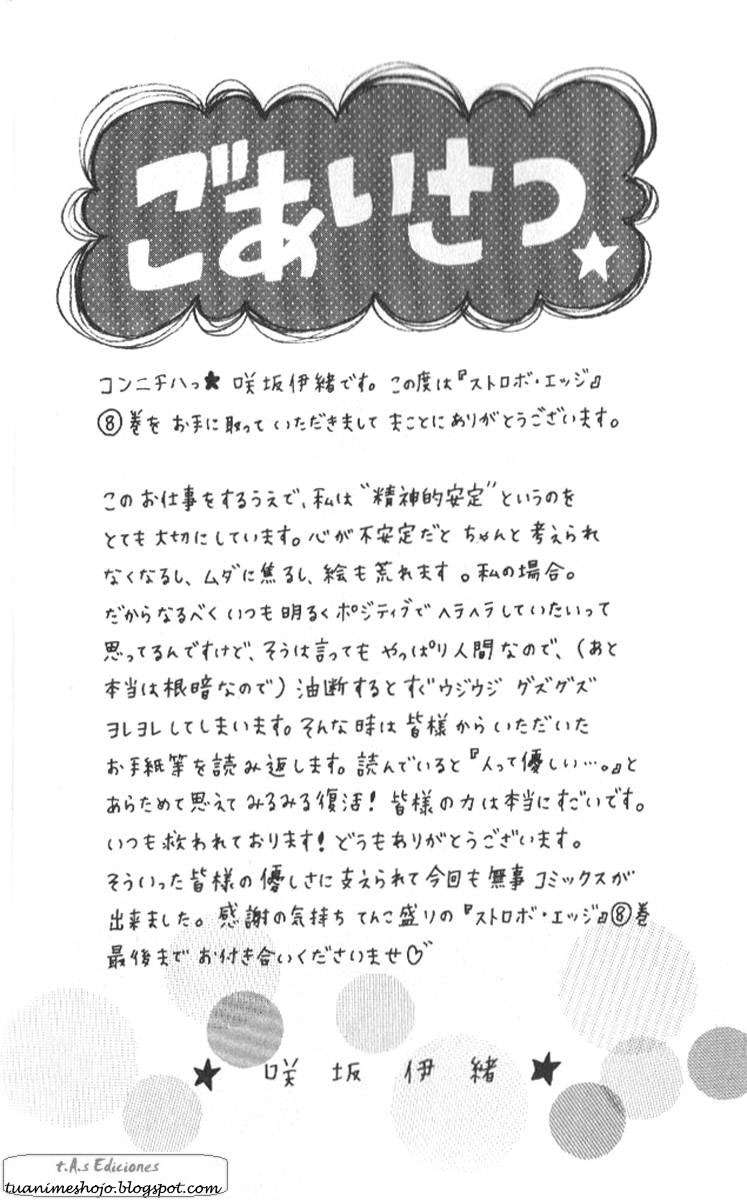 ごあいさつ★
コンニチハっ★ 咲坂伊緒です。この度は『ストロボ・エッジ』
⑧巻を お手に取って いただきまして まことにありがとうございます。
このお仕事をするうえで、私は“精神的安定”というのを
とても大切にしています。心が不安定だと ちゃんと考えられ
なくなるし、ムダに焦るし、絵も荒れます。私の場合。
だからなるべく いつも明るく ポジティブで ヘラヘラしていたいって
思ってるんですけど、そうは言っても やっぱり人間なので、(あと
本当は根暗なので)油断するとすぐウジウジ グズグズ
ヨレヨレしてしまいます。そんな時は 皆様からいただいた
お手紙等を読み返します。読んでいると『人って優しい…。』と
あらためて思えて みるみる復活! 皆様の力は本当にすごいです。
いつも救われております! どうもありがとうございます。
そういった皆様の優しさに支えられて今回も無事コミックスが
出来ました。感謝の気持ち てんこ盛りの『ストロボ・エッジ』⑧巻
最後まで お付き合いくださいませ♡
★ 咲坂伊緒 ★
t.A.s Ediciones
tuanimeshojo.blogspot.com